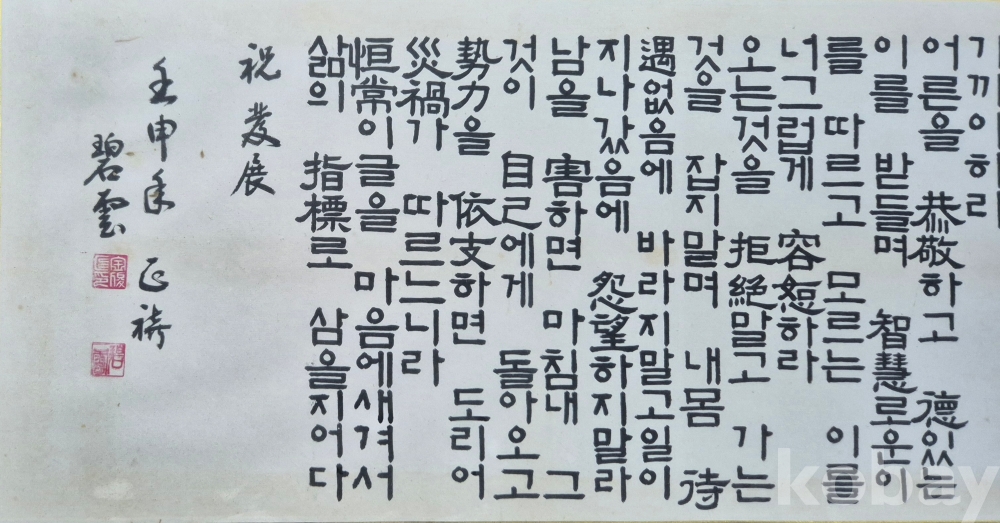 어른을 恭敬하고 德있는
이를 받들며 智慧로운이
를 따르고 모르는 이를
너그럽게 容恕하라
오는것을 拒絶말고 가는
것을 잡지말며 내몸 待
遇없음에 바라지말고일이
지나갔음에 怨望하지말라
남을 害하면 마침내 그
것이 自己에게 돌아오고
勢力을 依支하면 도리어
災禍가 따르느니라
恒常이글을 마음에새겨서
삶의 指標로 삼을지어다
祝 發展
壬申年
碧雲
kobay